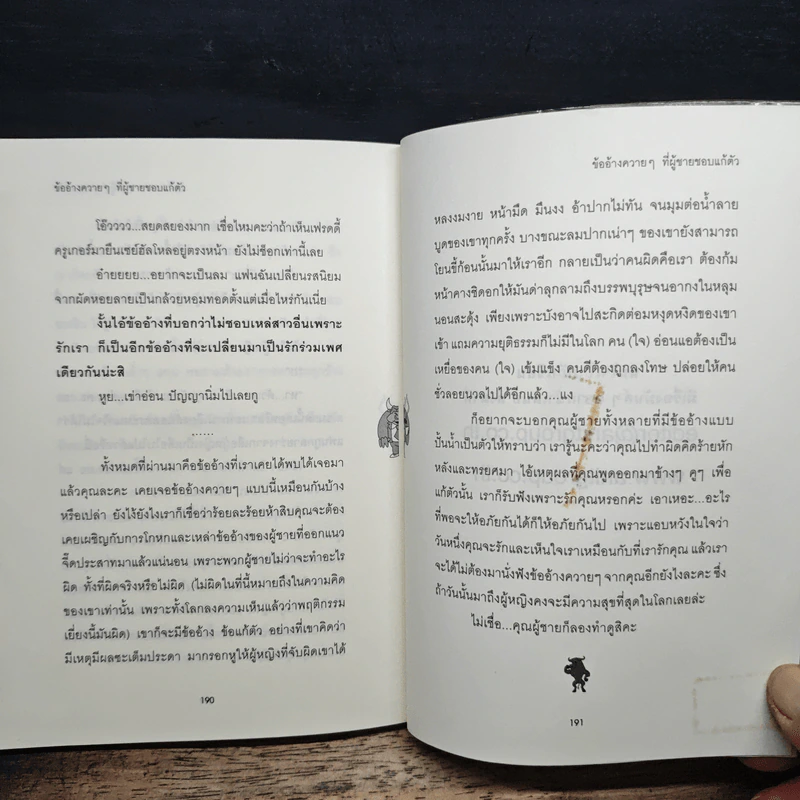 ข้ออ้างควายๆ ที่ผู้ชายชอบแก้ตัว
โอ๊วววว...สยดสยองมาก เชื่อไหมคะว่าถ้าเห็นเฟรดดี้
ครูเกอร์มายืนเซย์ฮัลโหลอยู่ตรงหน้า ยังไม่ช็อกเท่านี้เลย
อ๋ายยยย...อยากจะเป็นลม แฟนฉันเปลี่ยนรสนิยม
จากผัดหอยลายเป็นกล้วยหอมทอดตั้งแต่เมื่อไหร่กันเนี่ย
งั้นไอ้ข้ออ้างที่บอกว่าไม่ชอบเหล่สาวอื่นเพราะ
รักเรา ก็เป็นอีกข้ออ้างที่จะเปลี่ยนมาเป็นรักร่วมเพศ
เดียวกันน่ะสิ
หูย...เข่าอ่อน ปัญญานิ่มไปเลยกู
......
ทั้งหมดที่ผ่านมาคือข้ออ้างที่เราเคยได้พบได้เจอมา
แล้วคุณละคะ เคยเจอข้ออ้างควายๆ แบบนี้เหมือนกันบ้าง
หรือเปล่า ยังไงยังไงเราก็เชื่อว่าร้อยละร้อยห้าสิบคุณจะต้อง
เคยเผชิญกับการโกหกและเหล่าข้ออ้างของผู้ชายที่ออกแนว
จี๊ดประสาทมาแล้วแน่นอน เพราะพวกผู้ชายไม่ว่าจะทำอะไร
ผิด ทั้งที่ผิดจริงหรือไม่ผิด (ไม่ผิดในที่นี้หมายถึงในความคิด
ของเขาเท่านั้น เพราะทั้งโลกลงความเห็นแล้วว่าพฤติกรรม
เยี่ยงนี้มันผิด) เขาก็จะมีข้ออ้าง ข้อแก้ตัว อย่างที่เขาคิดว่า
มีเหตุมีผลซะเต็มประดา มากรอกหูให้ผู้หญิงที่จับผิดเขาได้
190
ข้ออ้างควายๆ ที่ผู้ชายชอบแก้ตัว
หลงงมงาย หน้ามืด มึนงง อ้าปากไม่ทัน จนมุมต่อน้ำลาย
บูดของเขาทุกครั้ง บางขณะลมปากเน่าๆ ของเขายังสามารถ
โยนขี้ก้อนนั้นมาให้เราอีก กลายเป็นว่าคนผิดคือเรา ต้องก้ม
หน้าคางชิดอกให้มันด่าลุกลามถึงบรรพบุรุษจนอากงในหลุม
นอนสะดุ้ง เพียงเพราะบังอาจไปสะกิดต่อมหงุดหงิดของเขา
เข้า แถมความยุติธรรมก็ไม่มีในโลก คน (ใจ) อ่อนแอต้องเป็น
เหยื่อของคน (ใจ) เข้มแข็ง คนดีต้องถูกลงโทษ ปล่อยให้คน
ชั่วลอยนวลไปได้อีกแล้ว...แง
ก็อยากจะบอกคุณผู้ชายทั้งหลายที่มีข้ออ้างแบบ
ปั้นน้ำเป็นตัวให้ทราบว่า เรารู้นะคะว่าคุณไปทำผิดคิดร้ายหัก
หลังและทรยศมา ไอ้เหตุผลที่คุณพูดออกมาข้างๆ คูๆ เพื่อ
แก้ตัวนั้น เราก็รับฟังเพราะรักคุณหรอกค่ะ เอาเหอะ...อะไร
ที่พอจะให้อภัยกันได้ก็ให้อภัยกันไป เพราะแอบหวังในใจว่า
วันหนึ่งคุณจะรักและเห็นใจเราเหมือนกับที่เรารักคุณ แล้วเรา
จะได้ไม่ต้องมานั่งฟังข้ออ้างควายๆ จากคุณอีกยังไงละคะ ซึ่ง
ถ้าวันนั้นมาถึงผู้หญิงคงจะมีความสุขที่สุดในโลกเลยล่ะ
ไม่เชื่อ...คุณผู้ชายก็ลองทำดูสิคะ
191